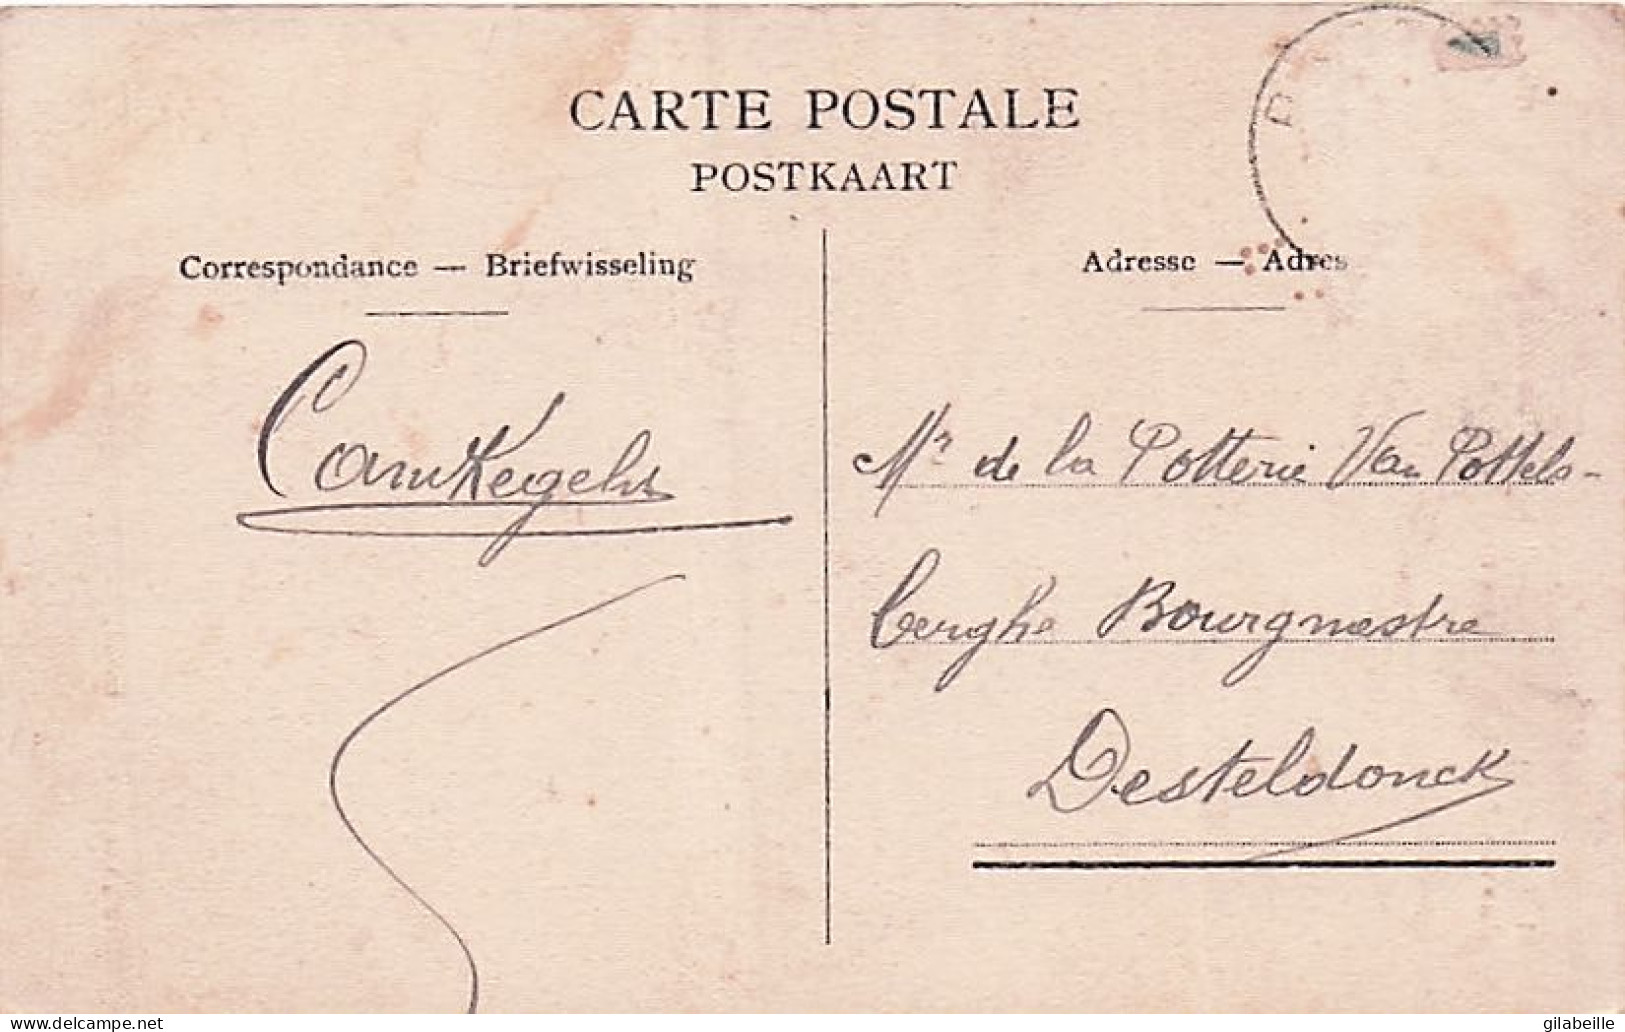 CARTE POSTALE
POSTKAART
Correspondance — Briefwisseling
Adresse — Adres
Mr de la Potterie Van Pottels-
berghe Bourgmestre
Desteldonck
delcampe.net
gilabeille